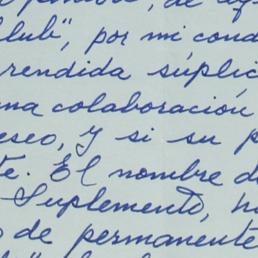 lub", por mi cond
rendida súplic
na colaboración
eseo, y si su p
te. El nombre d
Suplemento, h
de permanente